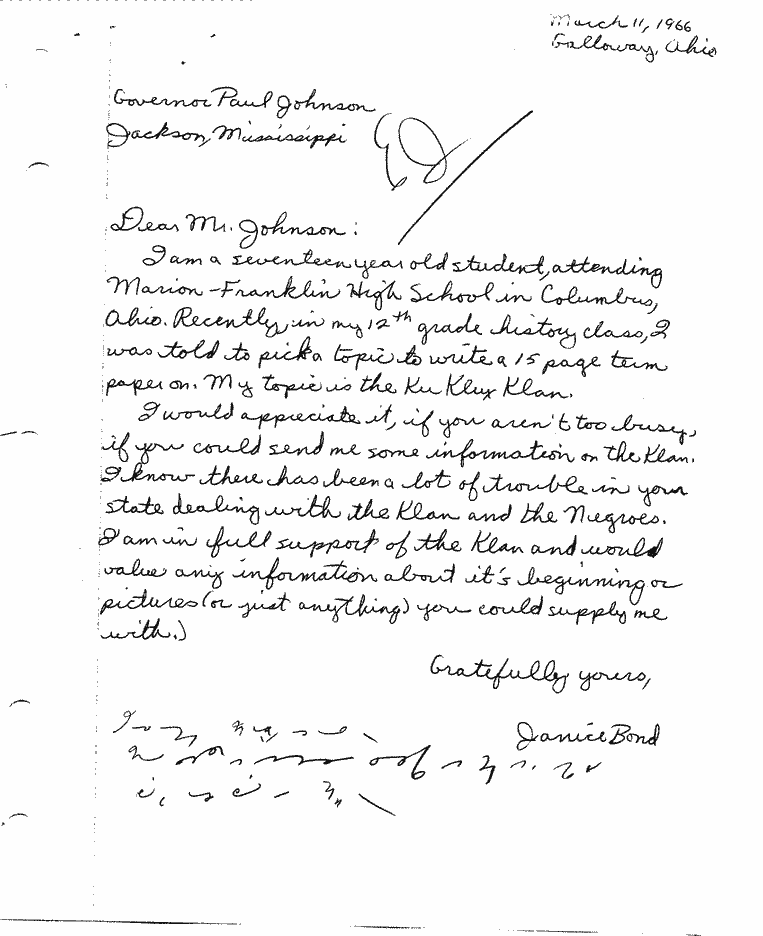 March 11, 1966
Galloway, Ohio
Governor Paul Johnson
Jackson, Mississippi
Dear Mr. Johnson:
I am a seventeen year old student, attending
Marion-Franklin High School in Columbus,
Ohio. Recently, in my 12th grade history class, I
was told to pick a topic to write a 15 page term
paper on. My topic is the Ku Klux Klan.
I would appreciate it, if you aren't too busy,
if you could send me some information on the Klan.
I know there has been a lot of trouble in your
state dealing with the Klan and the Negroes.
I am in full support of the Klan and would
value any information about it's beginning or
pictures (or just anything) you could supply me
with.)
Gratefully yours,
Janice Bond